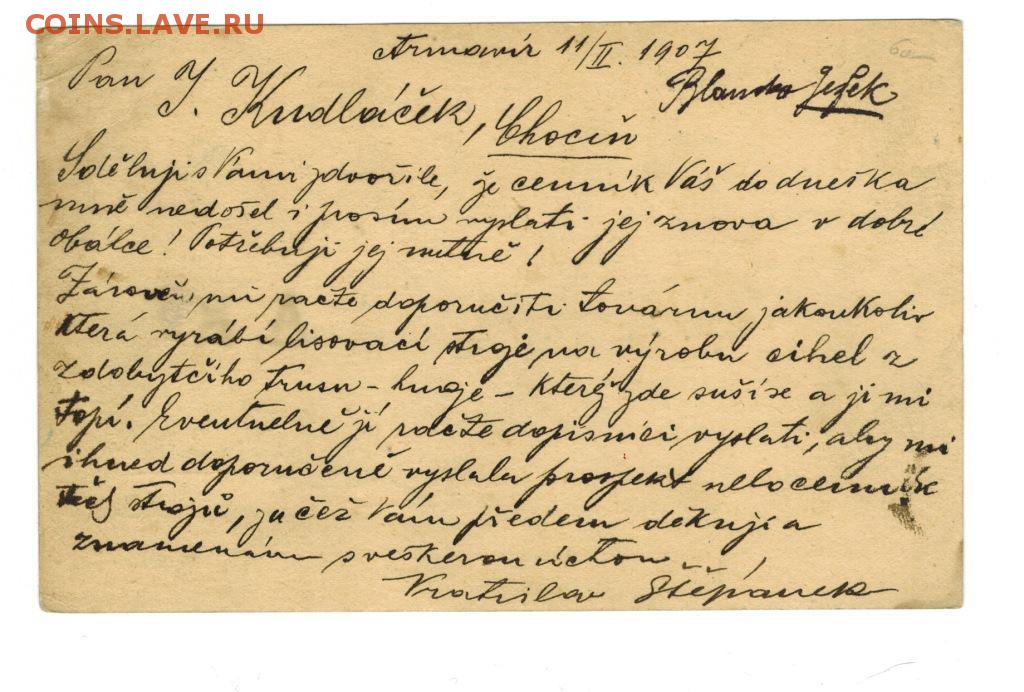 COINS.LAVE.RU
Armavir 11/II. 1907
Pan J. Kudláček, Choceň
Ježek
Sděluji s Vámi zdvořile, že cenník Váš do dneška
mně nedošel i prosím vyslati jej znova v dobré
obálce! Potřebuji jej nutně!
Zároveň mi račte doporučiti továrnu jakoukoliv
která vyrábí lisovací stroje na výrobu cihel z
z dobytčího trusu – hnoje – který zde suší se a jí mi
topí. Eventuelně jí račte dopisnici vyslati, aby mi
ihned doporučeně vyslala prospekt nebo cenník
těch strojů, začež Vám předem děkuji a
znamenám s veškerou úctou
Vratislav Štěpánek